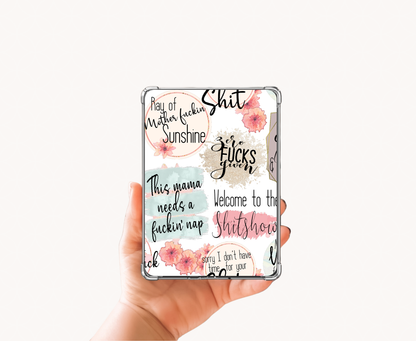 Ray of
Mother fuckin
Sunshine
Shit
zero
FUCKS
given
This mama
needs a
fuckin' nap
Welcome to the
Shitshow
sorry I don't have
time for your